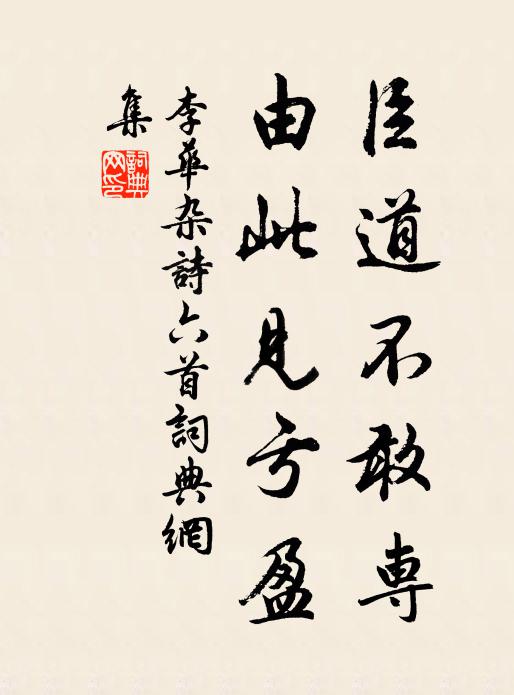 臣道不敢専
由此見亏盈
李華杂詩六首詞典網
集
詞典
网印